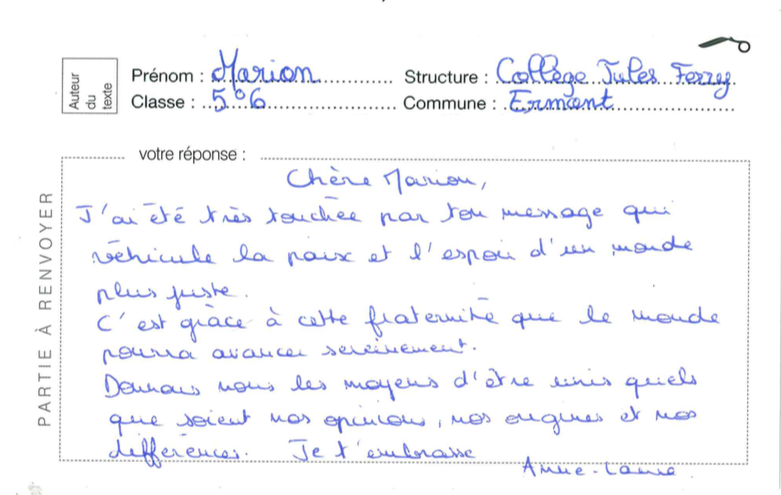 Auteur du texte
Prénom : Marion Structure : Collège Jules Ferry
Classe : 5°6 Commune : Ermont
votre réponse :
PARTIE À RENVOYER
Chère Marion,
J'ai été très touchée par ton message qui
véhicule la paix et l'espoir d'un monde
plus juste.
C'est grâce à cette fraternité que le monde
pourra avancer sereinement.
Donnons nous les moyens d'être unis quels
que soient nos opinions, nos origines et nos
différences. Je t'embrasse
Anne-Laure